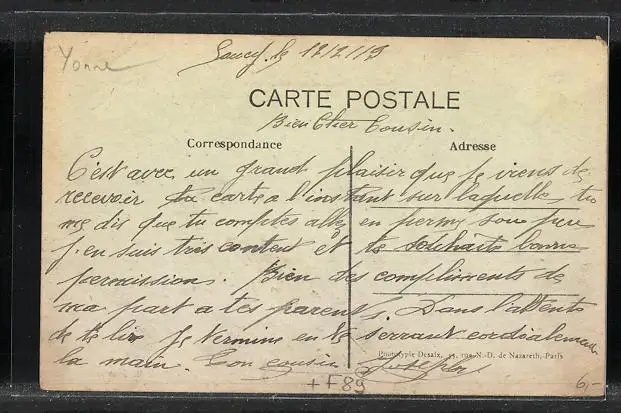 Yonne
le 12/2/19
CARTE POSTALE
Bien Cher Cousin.
Correspondance
Adresse
C'est avec un grand plaisir que je viens de
recevoir ta carte a l'instant sur laquelle tu
me dis que tu comptes aller en perme sous peu
j'en suis très content et te souhaite bonne
permission. Bien des compliments de
ma part a tes parents. Dans l'attente
de te lire je termine en te serrant cordialement
la main. Ton cousin Joseph
Phototypie Desaix, rue N.-D. de Nazareth, Paris
+ F 89
6,-